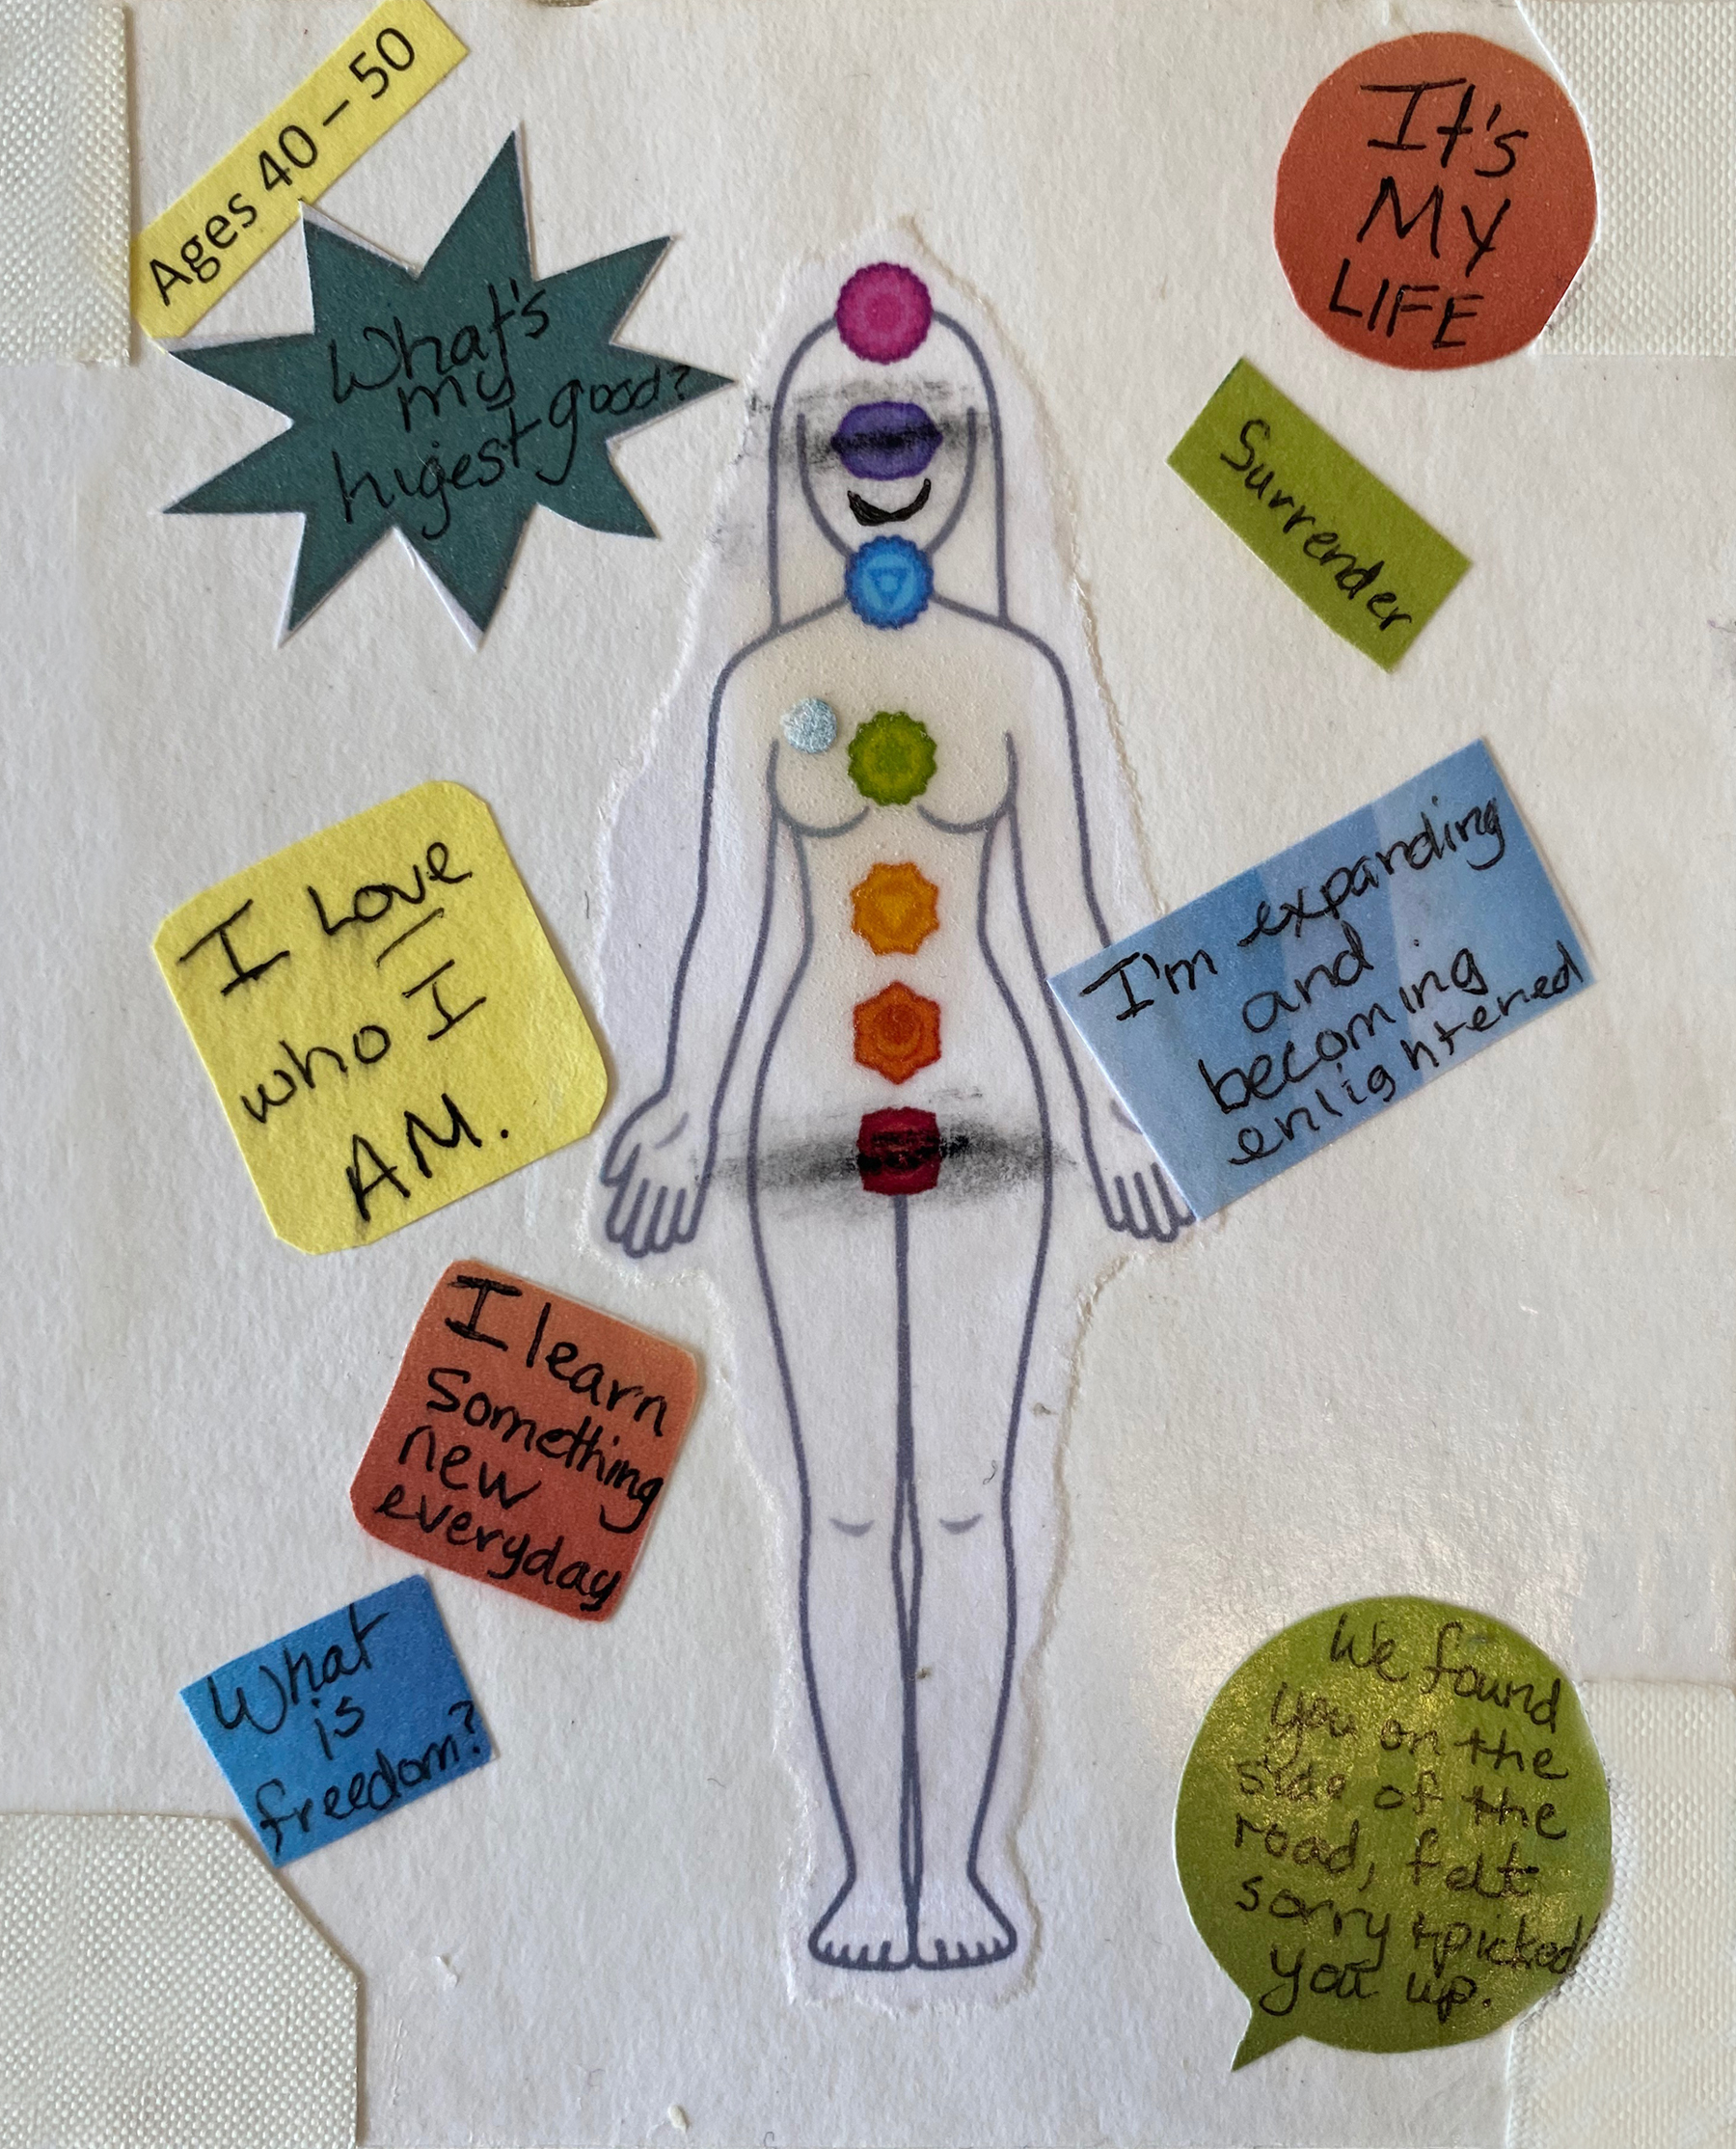 Ages 40 – 50
What's
my
higest good?
It's
MY
LIFE
Surrender
I Love
who I
AM.
I'm expanding
and
becoming
enlightened
I learn
something
new
everyday
What
is
freedom?
We found
you on the
side of the
road, felt
sorry + picked
you up.